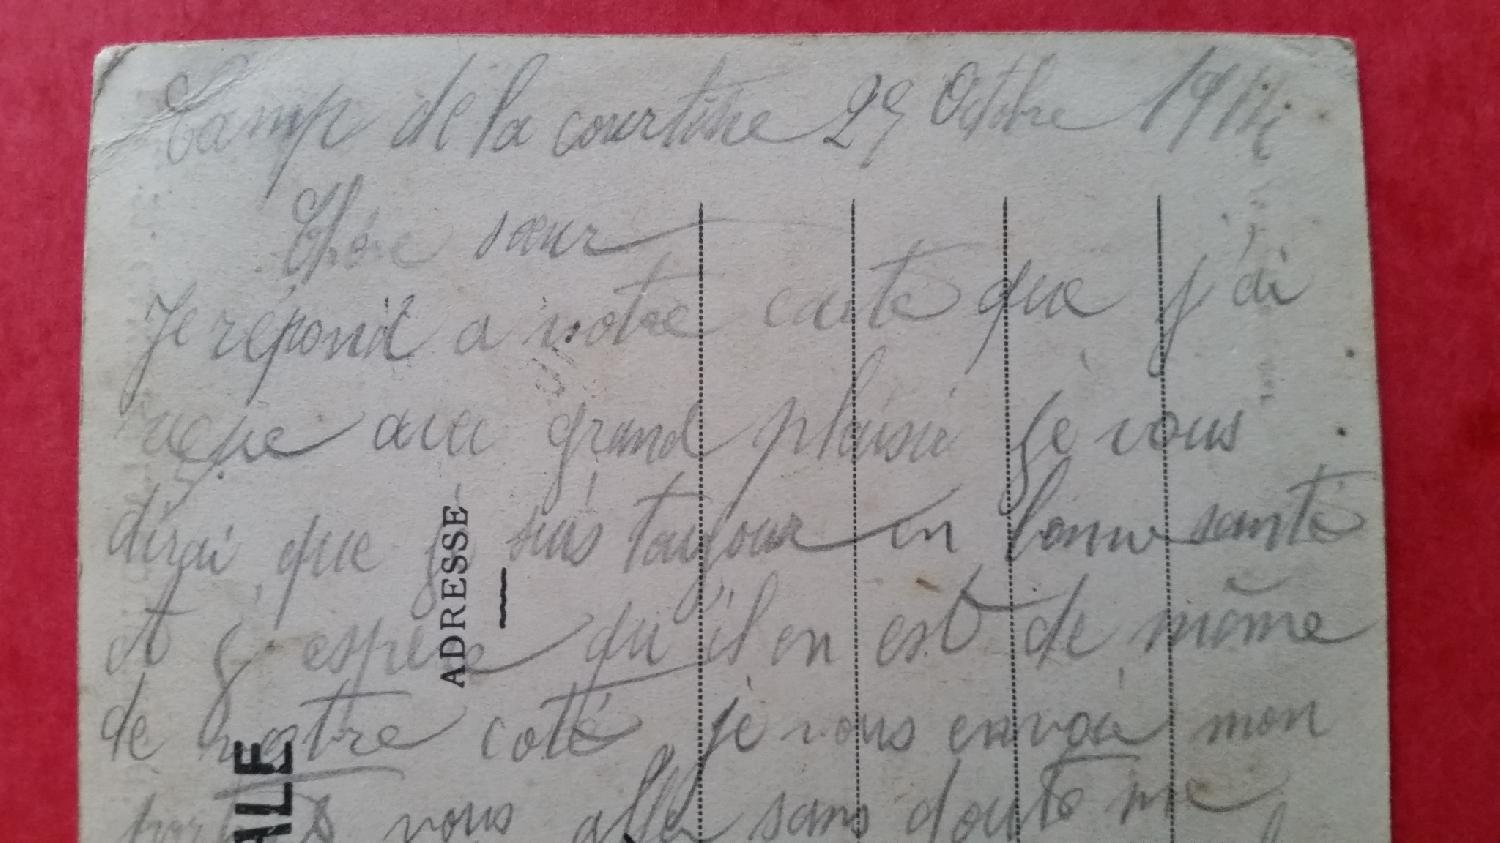 Camp de la courtine 29 Octobre 1914
Chère sœur
Je répond a votre carte que j'ai
reçue avec grand plaisir je vous
dirai que je suis toujour en bonne santé
et j'espere qu'il en est de même
de votre coté je vous envoie mon
vous aller sans doute me
ADRESSE
ALE